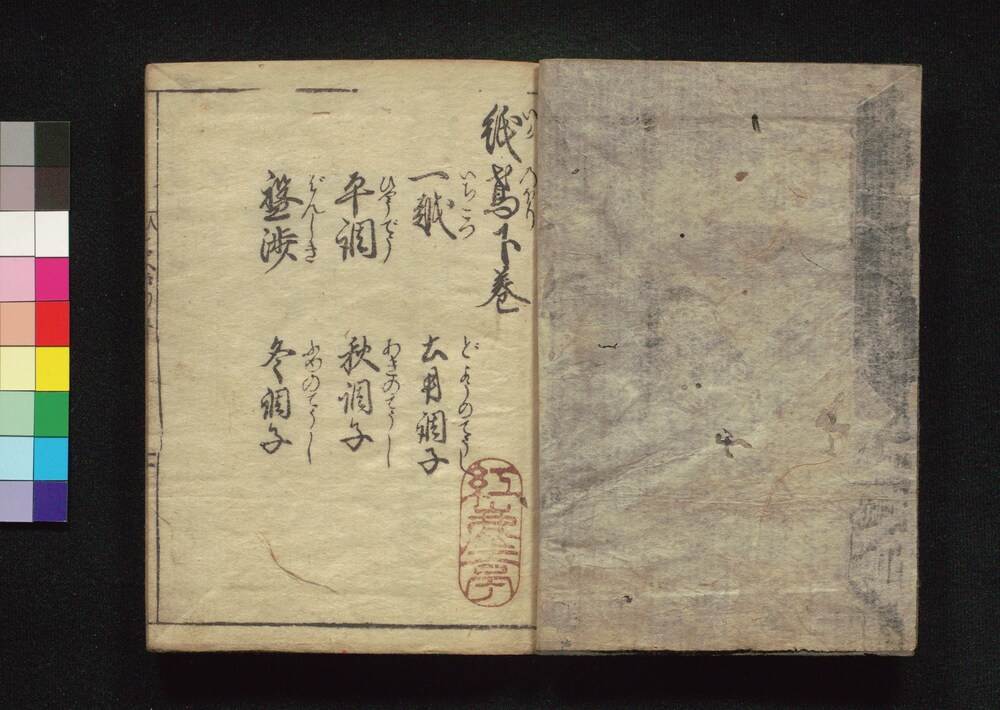 紙鳶下巻
いちこつ
一越
どようのてうし
土用調子
ひやうでう
平調
あきのてうし
秋調子
ばんしき
盤渉
ふゆのてうし
冬調子